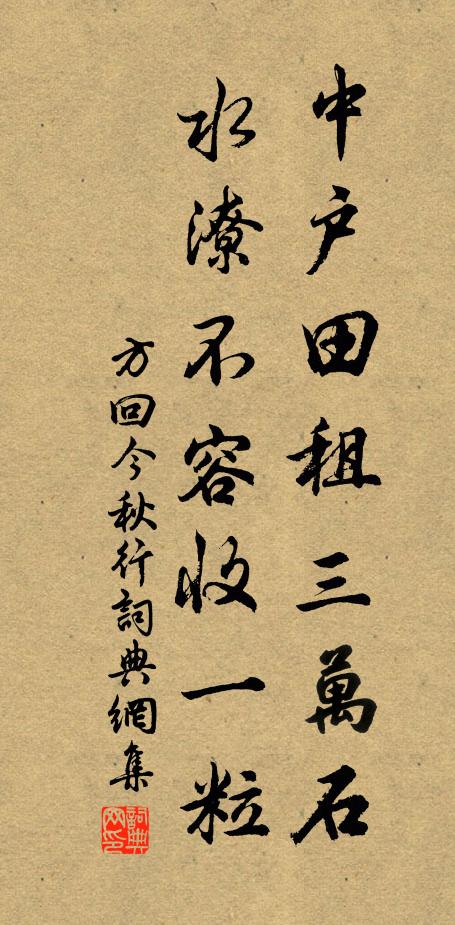 中户田租三萬石
水潦不容收一粒
方回今秋行詞典網集
詞典网印